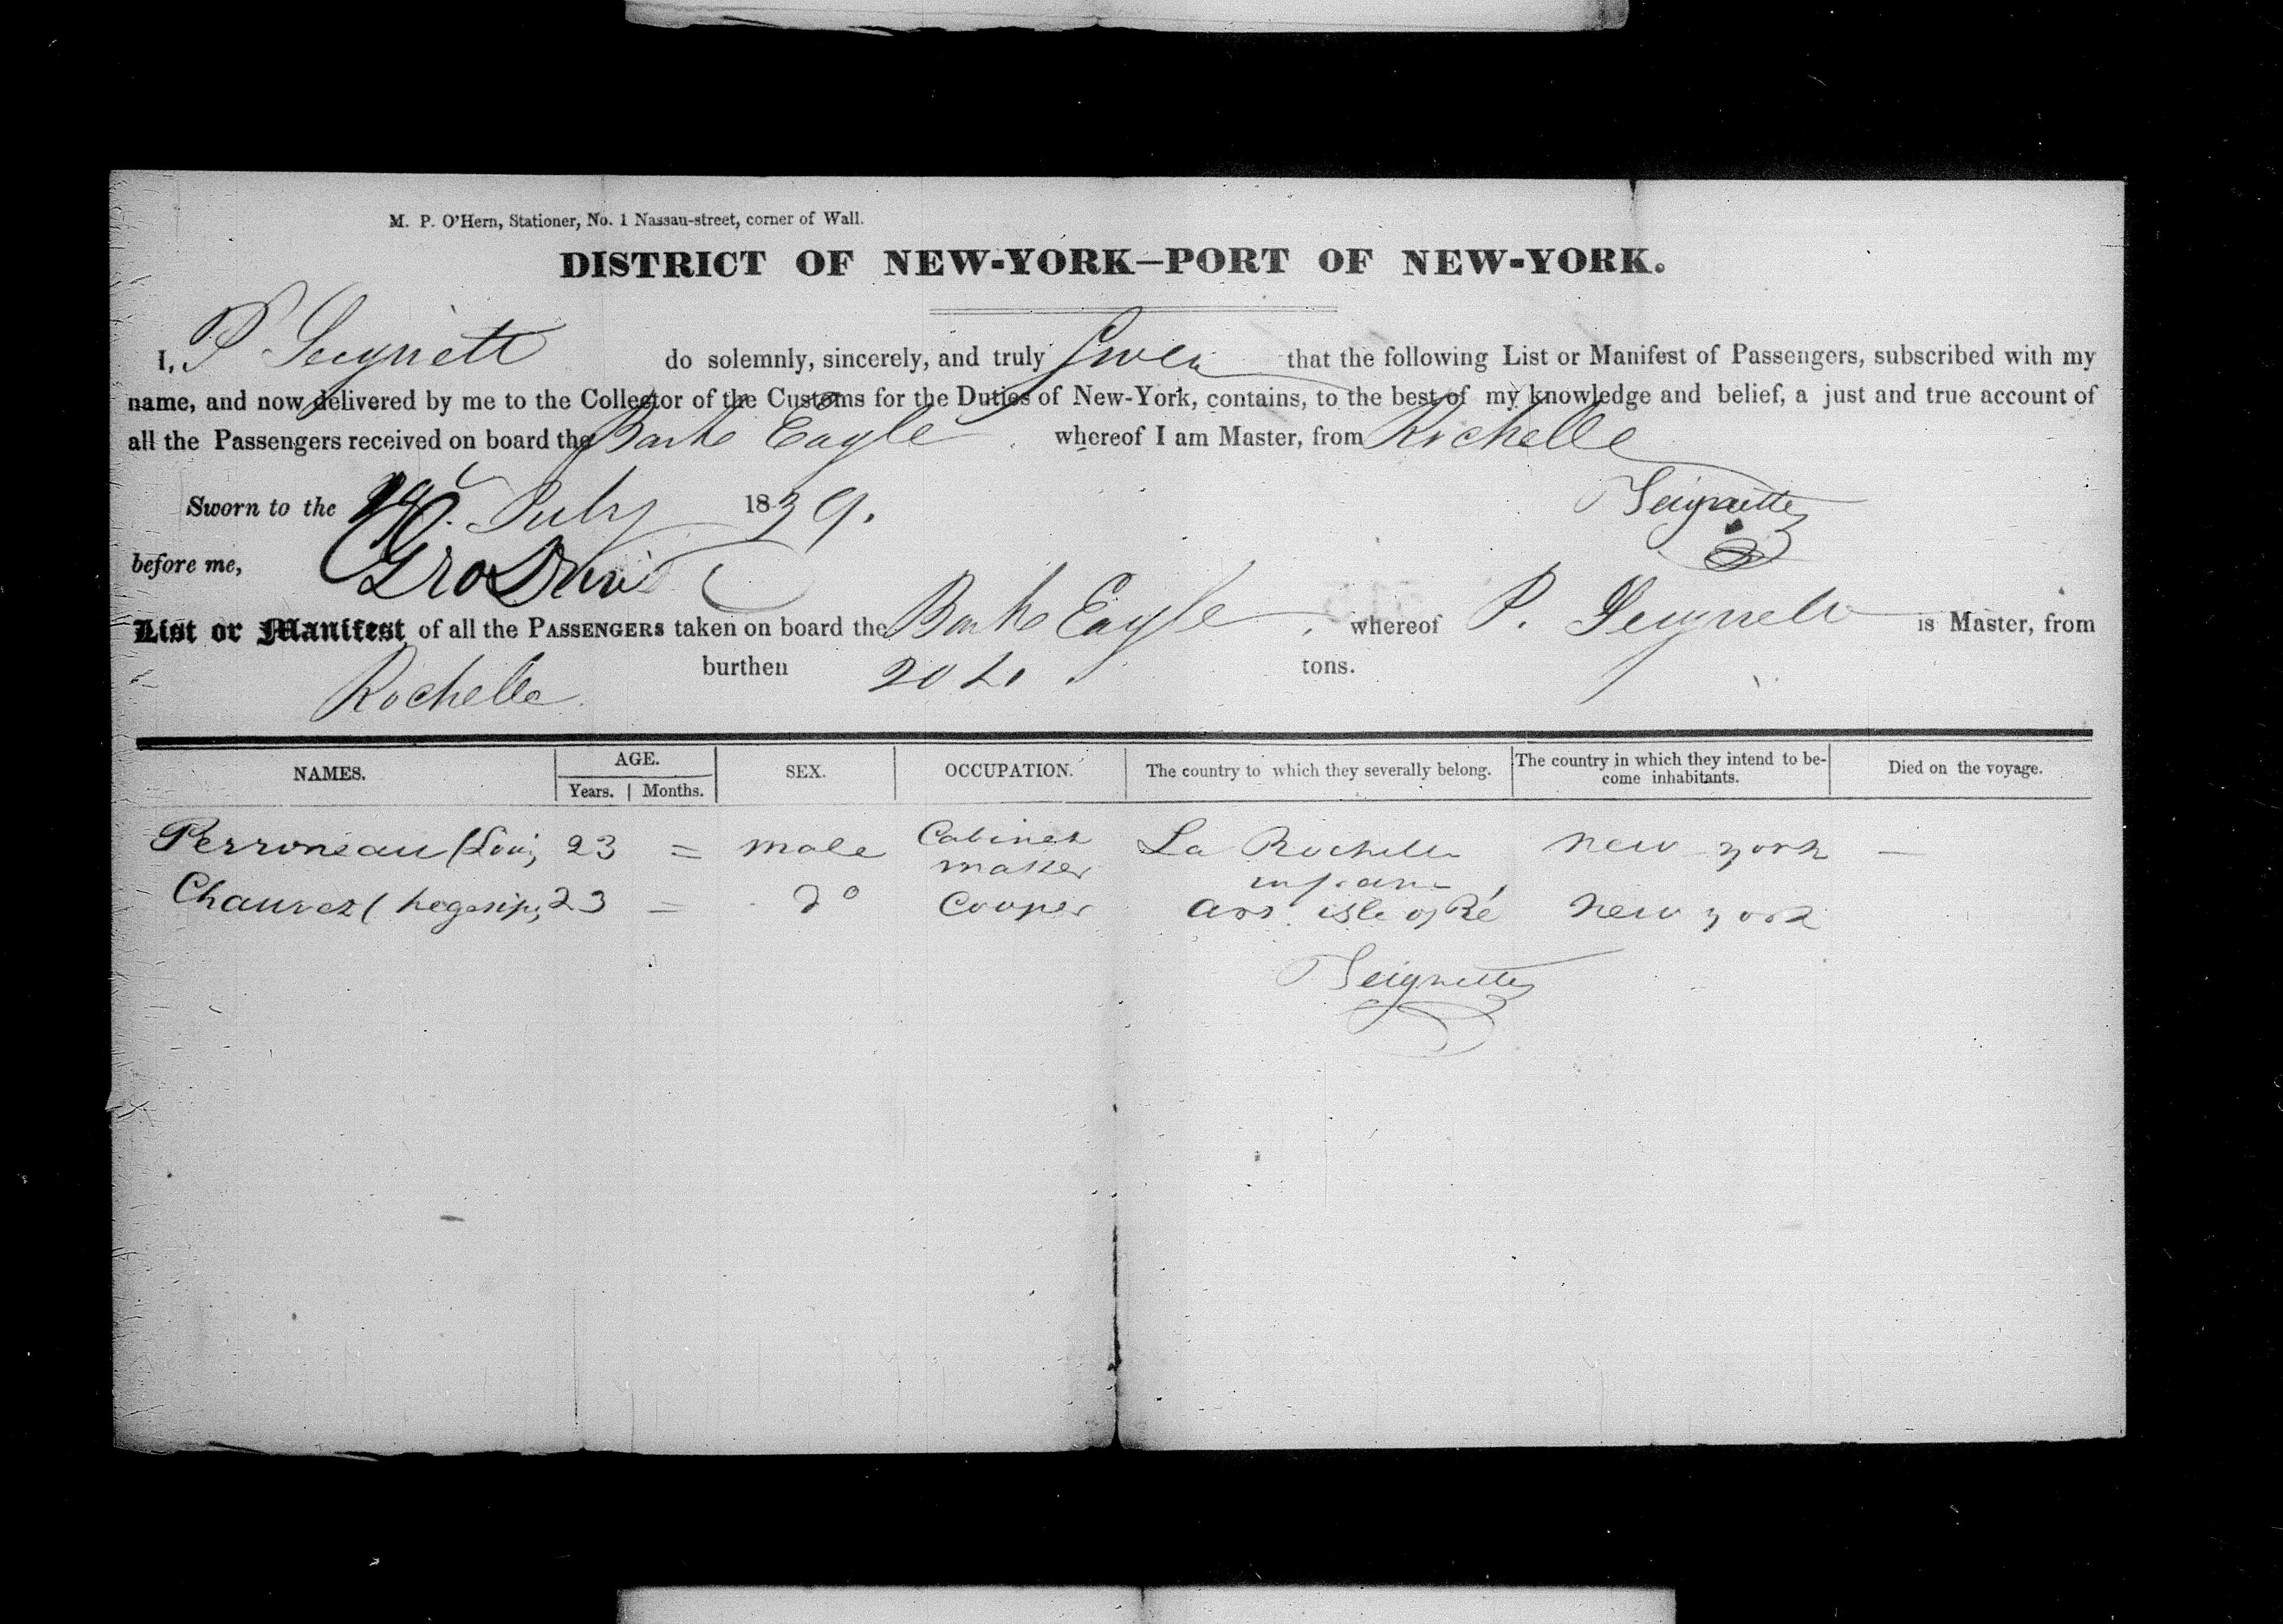 M. P. O'Hern, Stationer, No. 1 Nassau-street, corner of Wall.
DISTRICT OF NEW-YORK—PORT OF NEW-YORK.
I, P Seignett do solemnly, sincerely, and truly Swear that the following List or Manifest of Passengers, subscribed with my
name, and now delivered by me to the Collector of the Customs for the Duties of New-York, contains, to the best of my knowledge and belief, a just and true account of
all the Passengers received on board the Bark Eagle whereof I am Master, from Rochelle
Sworn to the July 1839. Seignette
before me,
List or Manifest of all the PASSENGERS taken on board the Bark Eagle, whereof P. Seignett is Master, from
Rochelle burthen tons.
NAMES. AGE. SEX. OCCUPATION. The country to which they severally belong. The country in which they intend to be-
come inhabitants. Died on the voyage.
Years. Months.
Perroneau (Louis 23 = male Cabinet maker La Rochelle new york —
Chauvet ( hegesip; 23 = do Cooper ars isle of Ré new york
Seignette